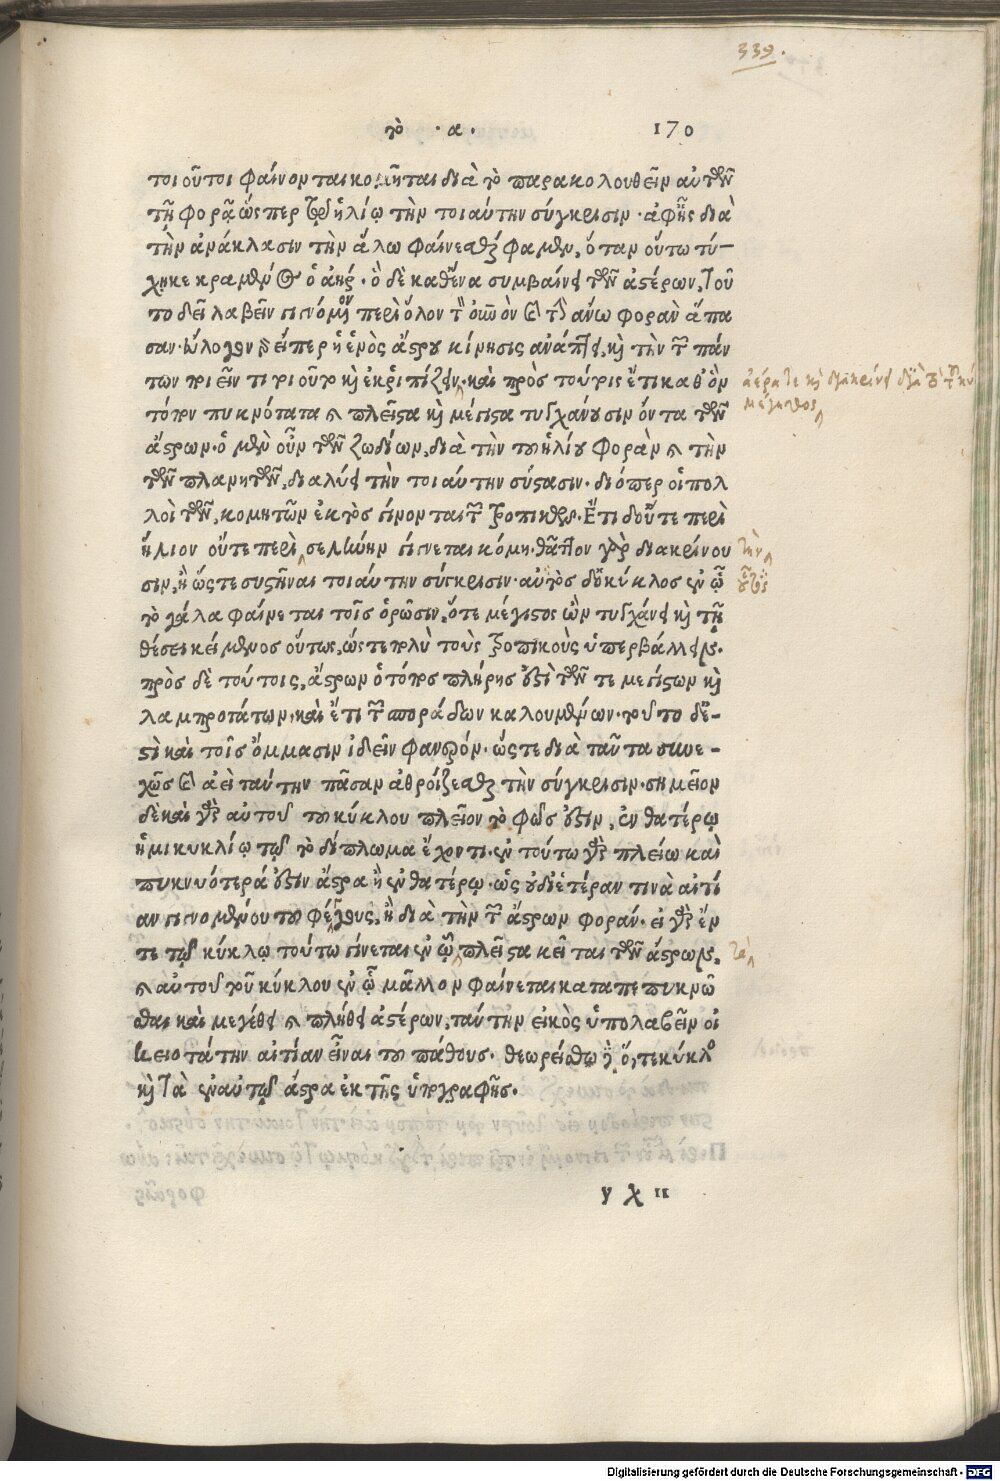 339.
τὸ · α · 170
τοι οὗτοι φαίνονται κομῆται διὰ τὸ παρακολουθεῖν αὐτῶν
τῇ φορᾷ, ὥσπερ τῷ ἡλίῳ τὴν τοιαύτην σύγκρισιν · ἀφ' ἧς διὰ
τὴν ἀνάκλασιν τὴν ἅλω φαίνεσθαί φαμεν, ὅταν οὕτω τύ-
χῃ κεκραμένος ὁ ἀήρ. ὃ δὲ καθ' ἕνα συμβαίνει τῶν ἀστέρων, τοῦ
το δεῖ λαβεῖν γινόμενον περὶ ὅλον τὸν οὐρανὸν καὶ τὴν ἄνω φορὰν ἅπα
σαν · εὔλογον γὰρ εἴπερ ἡ ἑνὸς ἄστρου κίνησις ἀνάπτει, καὶ τὴν τῶν πάν
των ποιεῖν τι τοιοῦτον καὶ ἐκριπίζειν, καὶ πρὸς τούτοις ἔτι καθ' ὃν
ἀέρα τε καὶ διακρίνειν διὰ τὸ τοῦ κύκλου
τόπον πυκνότατα καὶ πλεῖστα καὶ μέγιστα τυγχάνουσιν ὄντα τῶν
μέγεθος
ἄστρων. ὁ μὲν οὖν τῶν ζωδίων, διὰ τὴν τοῦ ἡλίου φορὰν καὶ τὴν
τῶν πλανητῶν, διαλύει τὴν τοιαύτην σύστασιν. διόπερ οἱ πολ
λοὶ τῶν κομητῶν ἐκτὸς γίνονται τῶν τροπικῶν. Ἔτι δ' οὔτε περὶ
ἥλιον οὔτε περὶ σελήνην γίγνεται κόμη. θᾶττον γὰρ διακρίνου
τὴν
σιν, ἢ ὥστε συστῆναι τοιαύτην σύγκρισιν. αὐτὸς δ' ὁ κύκλος ἐν ᾧ
οὗτος
τὸ γάλα φαίνεται τοῖς ὁρῶσιν, ὅτε μέγιστος ὢν τυγχάνει καὶ τῇ
θέσει κείμενος οὕτως, ὥστε πολὺ τοὺς τροπικοὺς ὑπερβάλλειν.
πρὸς δὲ τούτοις, ἄστρων ὁ τόπος πλήρης ἐστὶ τῶν τε μεγίστων καὶ
λαμπροτάτων, καὶ ἔτι τῶν σποράδων καλουμένων. τοῦτο δ' ἔ-
στὶ καὶ τοῖς ὄμμασιν ἰδεῖν φανερόν. ὥστε διὰ ταῦτα συνε-
χῶς καὶ ἀεὶ ταύτην πᾶσαν ἀθροίζεσθαι τὴν σύγκρισιν. σημεῖον
δὲ καὶ γὰρ αὐτοῦ τοῦ κύκλου πλεῖον τὸ φῶς ἐστιν, ἐν θατέρῳ
ἡμικυκλίῳ τῷ τὸ δίπλωμα ἔχοντι. ἐν τούτῳ γὰρ πλείω καὶ
πυκνότερά ἐστιν ἄστρα ἢ ἐν θατέρῳ. ὡς οὐ δι' ἑτέραν τινὰ αἰτί
αν γινομένου τοῦ φέγγους, ἢ διὰ τὴν τῶν ἄστρων φοράν. εἰ γὰρ ἔν
τε τῷ κύκλῳ τούτῳ γίνεται ἐν ᾧ πλεῖστα κεῖται τῶν ἄστρων,
τὰ
καὶ αὐτοῦ τοῦ κύκλου ἐν ᾧ μᾶλλον φαίνεται καταπεπυκνῶ
σθαι καὶ μεγέθει καὶ πλήθει ἀστέρων, ταύτην εἰκὸς ὑπολαβεῖν οἰ
κειοτάτην αἰτίαν εἶναι τοῦ πάθους. θεωρείσθω δὲ ὅ, τε κύκλος
καὶ τὰ ἐν αὐτῷ ἄστρα ἐκ τῆς ὑπογραφῆς.
y χ ii
Digitalisierung gefördert durch die Deutsche Forschungsgemeinschaft - DFG